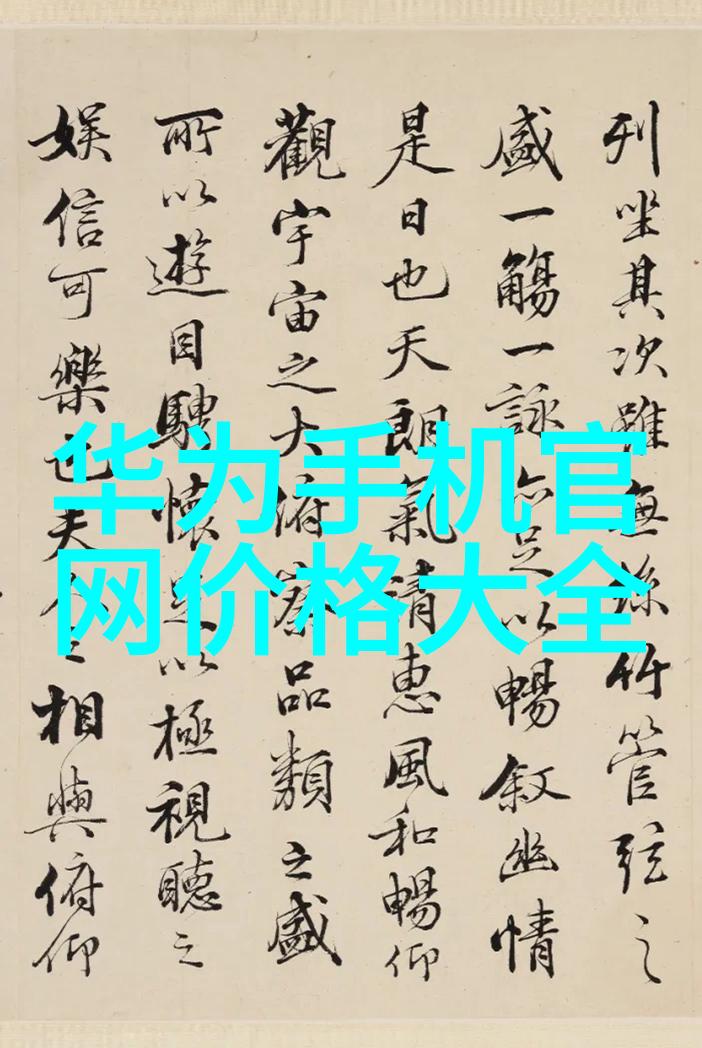 列坐其次雖無絲竹管弦之
盛一觴一詠亦足以暢叙幽情
是日也天朗氣清惠風和暢仰
觀宇宙之大俯察品類之盛
所以遊目騁懷足以極視聽之
娱信可樂也夫人之相與俯仰
华为手机官
网价格大全